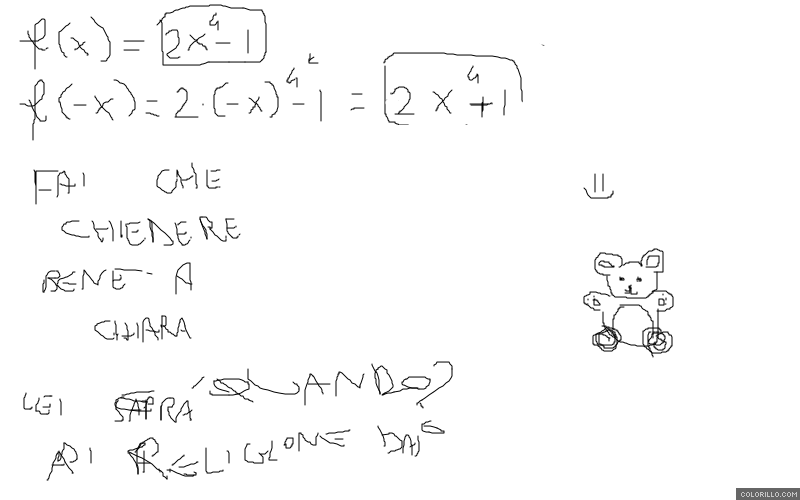 f(x) = 2x⁴-1
f(-x) = 2·(-x)⁴-1 = 2x⁴+1
FAI CHE
CHIEDERE
BENE A
CHIARA
LEI SAPRA' QUANDO?
A RELIGIONE DAI
COLORILLO.COM